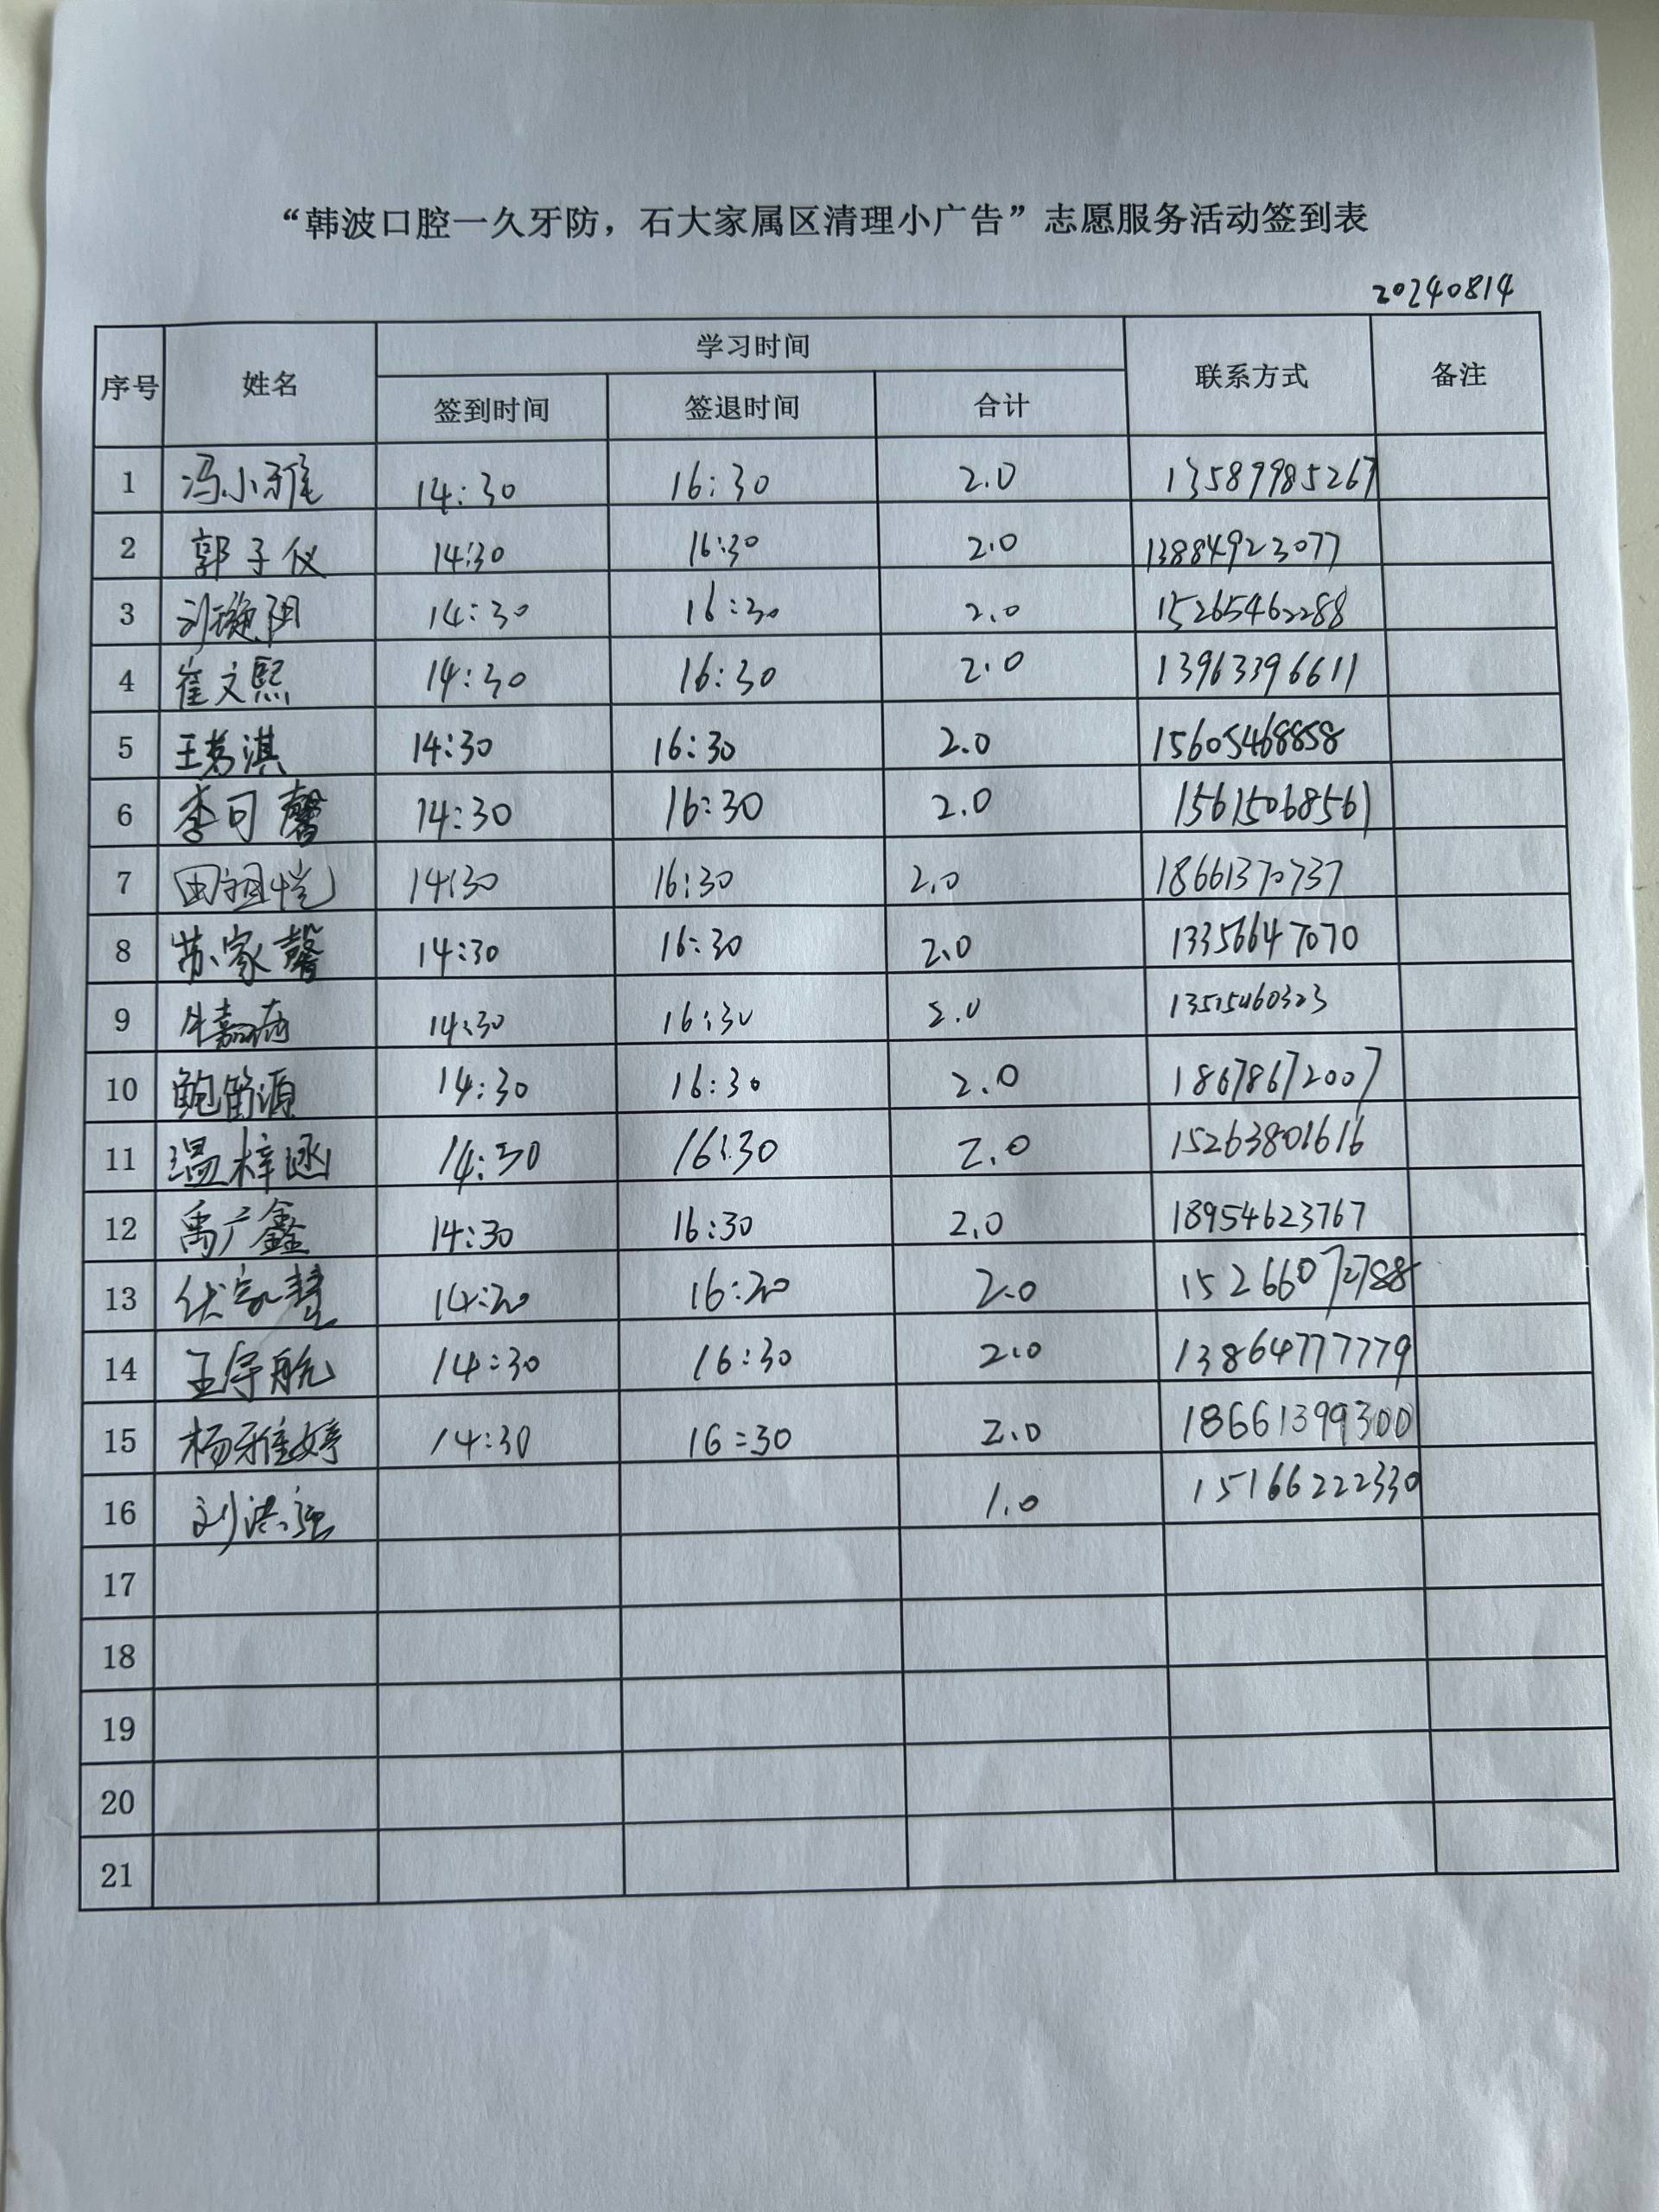 “韩波口腔一久牙防，石大家属区清理小广告”志愿服务活动签到表
20240814
序号 姓名 学习时间 联系方式 备注
签到时间 签退时间 合计
1 冯小雅 14:30 16:30 2.0 13589985267
2 郭子仪 14:30 16:30 2.0 13884923077
3 刘璇阳 14:30 16:30 2.0 15265462288
4 崔文熙 14:30 16:30 2.0 13963396611
5 王茗淇 14:30 16:30 2.0 15605468858
6 李可馨 14:30 16:30 2.0 15615068561
7 田祖恺 14:30 16:30 2.0 18661370737
8 苏家馨 14:30 16:30 2.0 13356647070
9 14:30 16:30 2.0 13515460323
10 鲍笛源 14:30 16:30 2.0 18678672007
11 温梓涵 14:30 16:30 2.0 15263801616
12 禹广鑫 14:30 16:30 2.0 18954623767
13 伏家慧 14:30 16:30 2.0 15266072788
14 王宇航 14:30 16:30 2.0 13864777779
15 杨雅婷 14:30 16:30 2.0 18661399300
16 刘洪强 1.0 15166222330
17
18
19
20
21